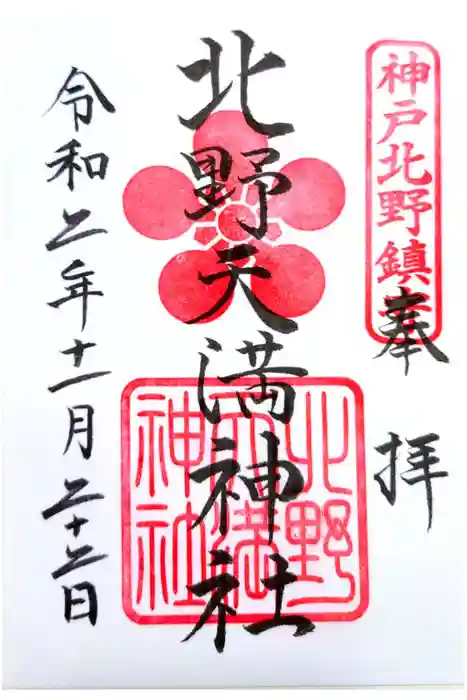 神戸北野鎮
奉拝
北野天満神社
北野天満神社
令和二年十一月二十二日